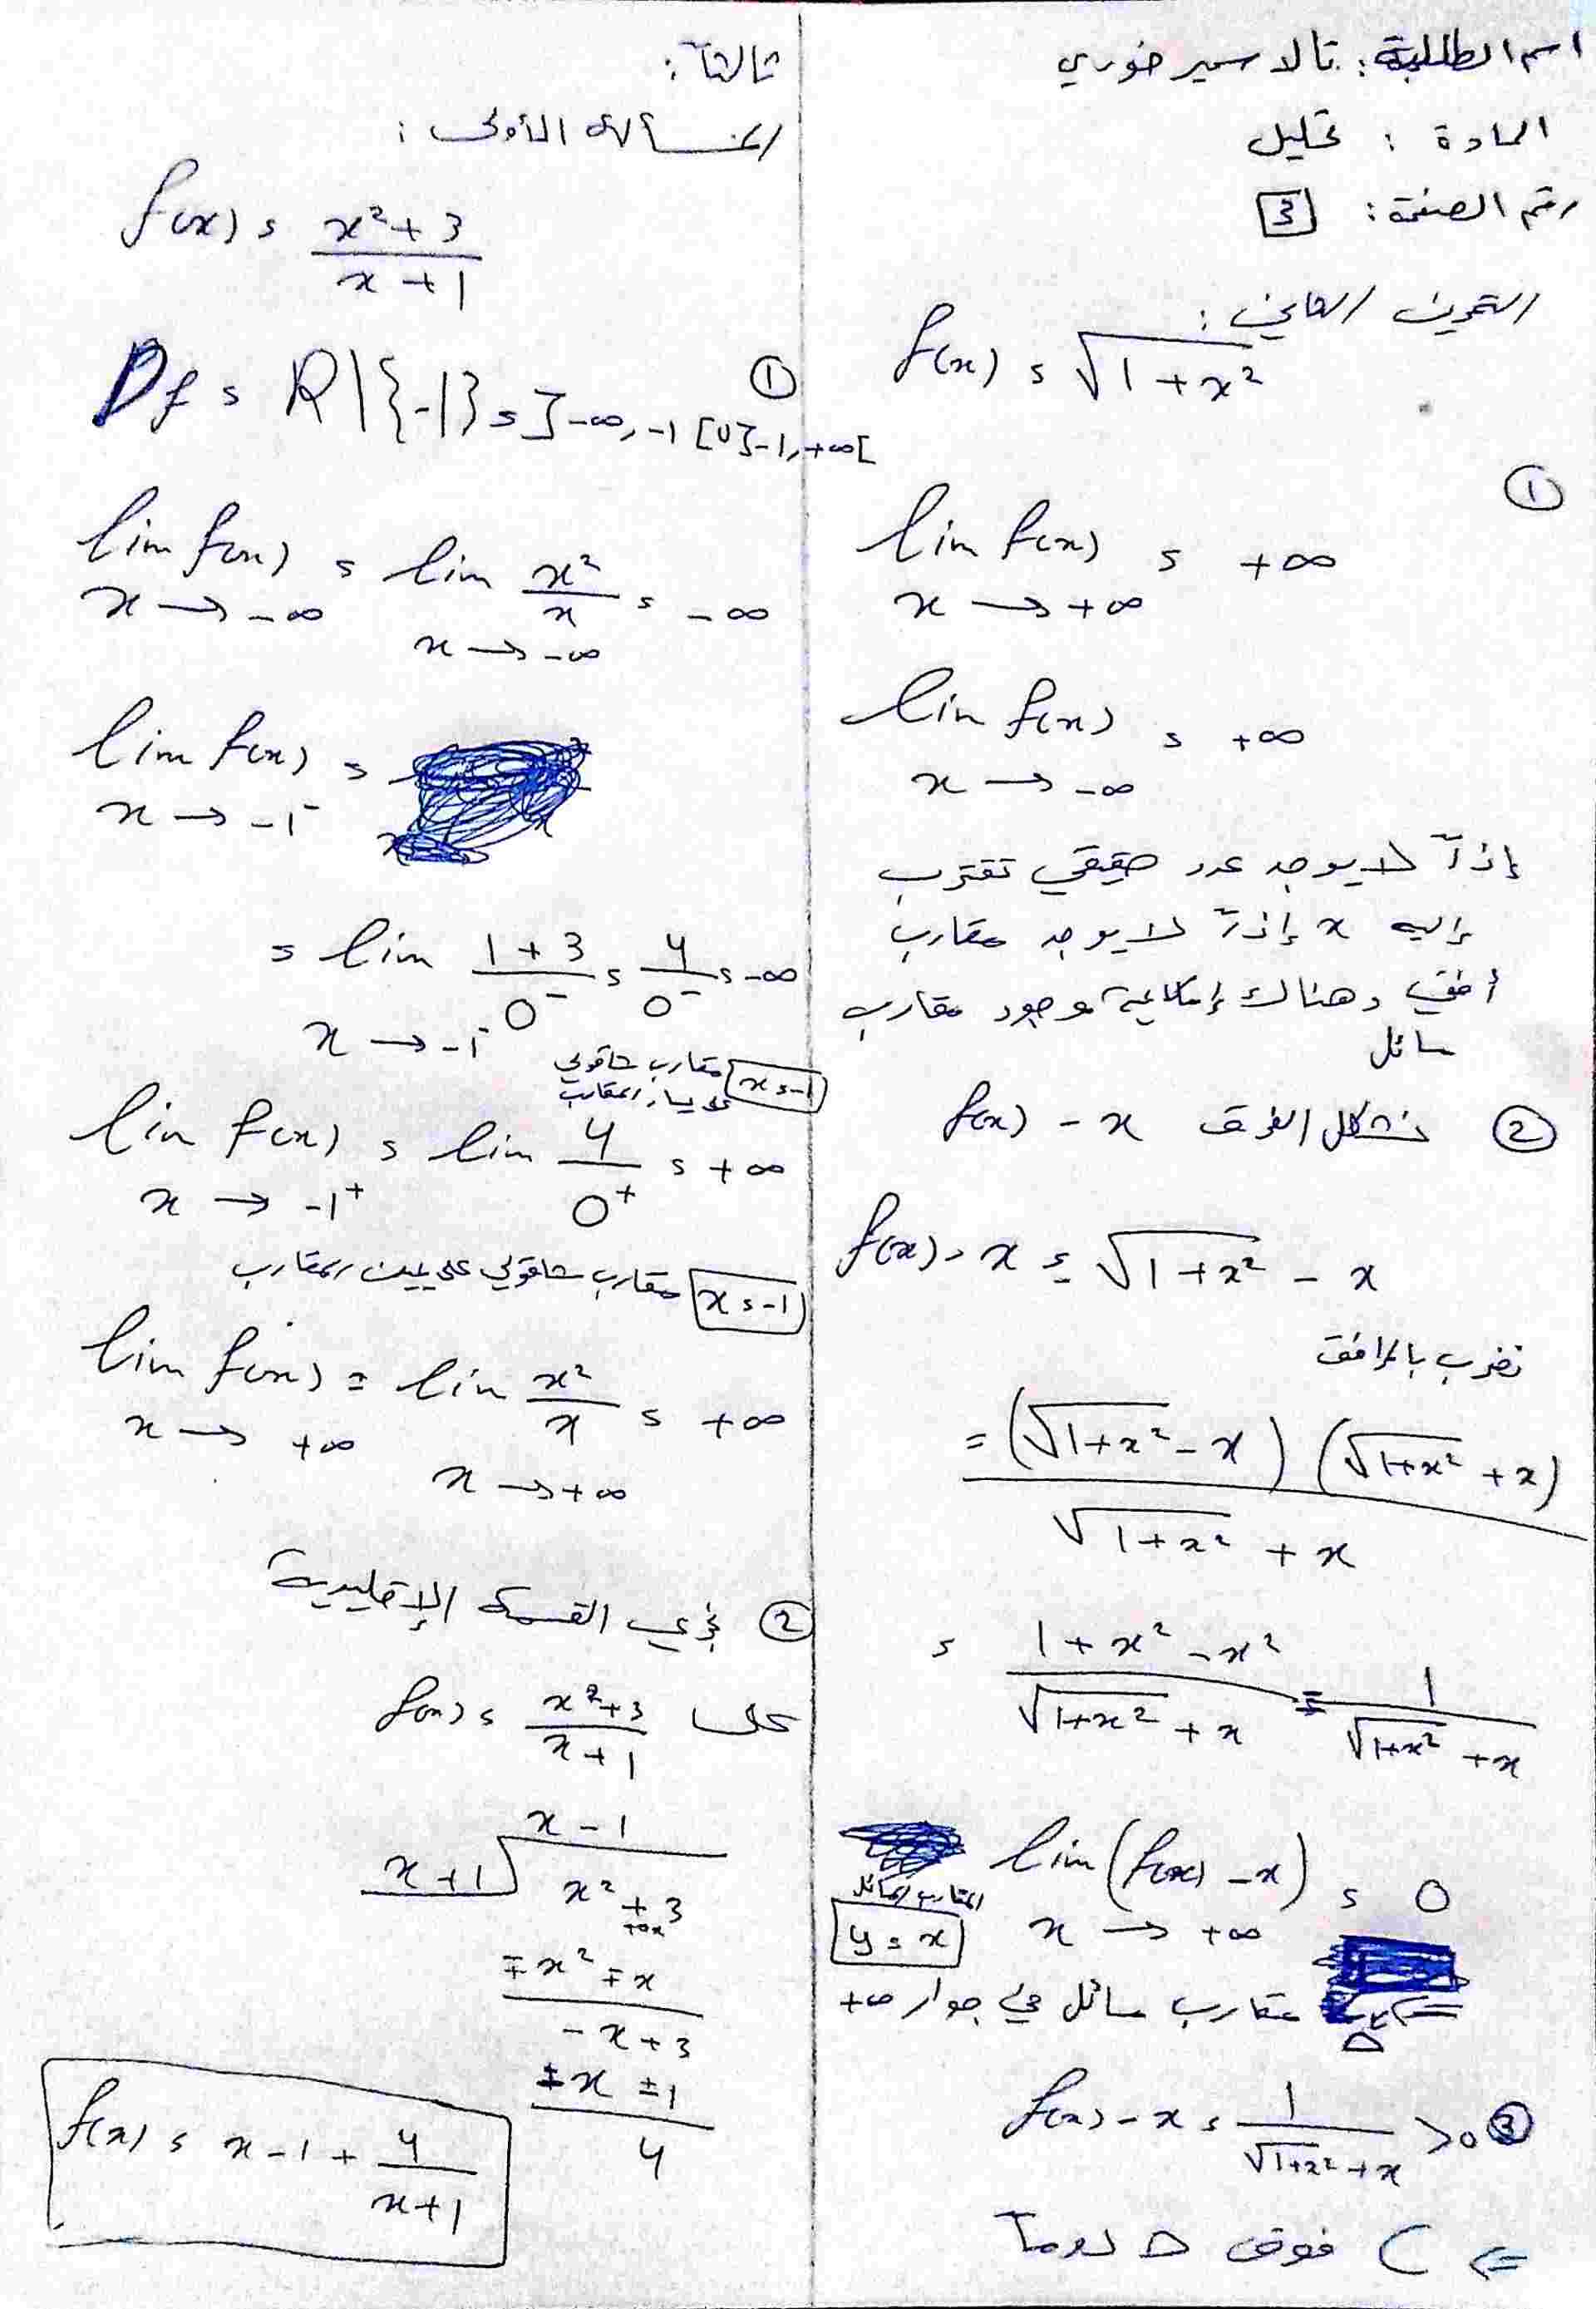 اسم الطالبة: تالا سمير خوري
المادة : تحليل
رقم الصفحة: 3
التمرين الثاني:
f(x) = √(1+x²)
①
lim f(x) = +∞
x → +∞
lim f(x) = +∞
x → -∞
إذاً لا يوجد عدد حقيقي تقترب
إليه x إذاً لا يوجد مقارب
أفقي وهناك إمكانية وجود مقارب
مائل
② نشكل الفرق f(x) - x
f(x) - x = √(1+x²) - x
نضرب بالمرافق
= (√(1+x²) - x) (√(1+x²) + x)
√(1+x²) + x
= (1+x²-x²)/(√(1+x²) + x) = 1/(√(1+x²) + x)
lim (f(x) - x) = 0
x → +∞
المقارب المائل
y = x
⇐ Δ مقارب مائل في جوار +∞
③ f(x) - x = 1/(√(1+x²) + x) > 0
⇐ C فوق Δ دوماً
ثالثاً:
المسألة الأولى:
f(x) = (x²+3)/(x+1)
① Df = R\{-1} = ]-∞,-1[ U ]-1,+∞[
lim f(x) = lim x²/x = -∞
x → -∞ x → -∞
lim f(x) =
x → -1⁻
= lim (1+3)/0⁻ = 4/0⁻ = -∞
x → -1⁻
x = -1 مقارب شاقولي
على يسار المقارب
lim f(x) = lim 4/0⁺ = +∞
x → -1⁺
x = -1 مقارب شاقولي على يمين المقارب
lim f(x) = lim x²/x = +∞
x → +∞ x → +∞
② نجري القسمة الإقليدية
على f(x) = (x²+3)/(x+1)
x - 1
x+1 x² + 3
+0x
∓x² ∓x
-x+3
±x ±1
4
f(x) = x-1 + 4/(x+1)